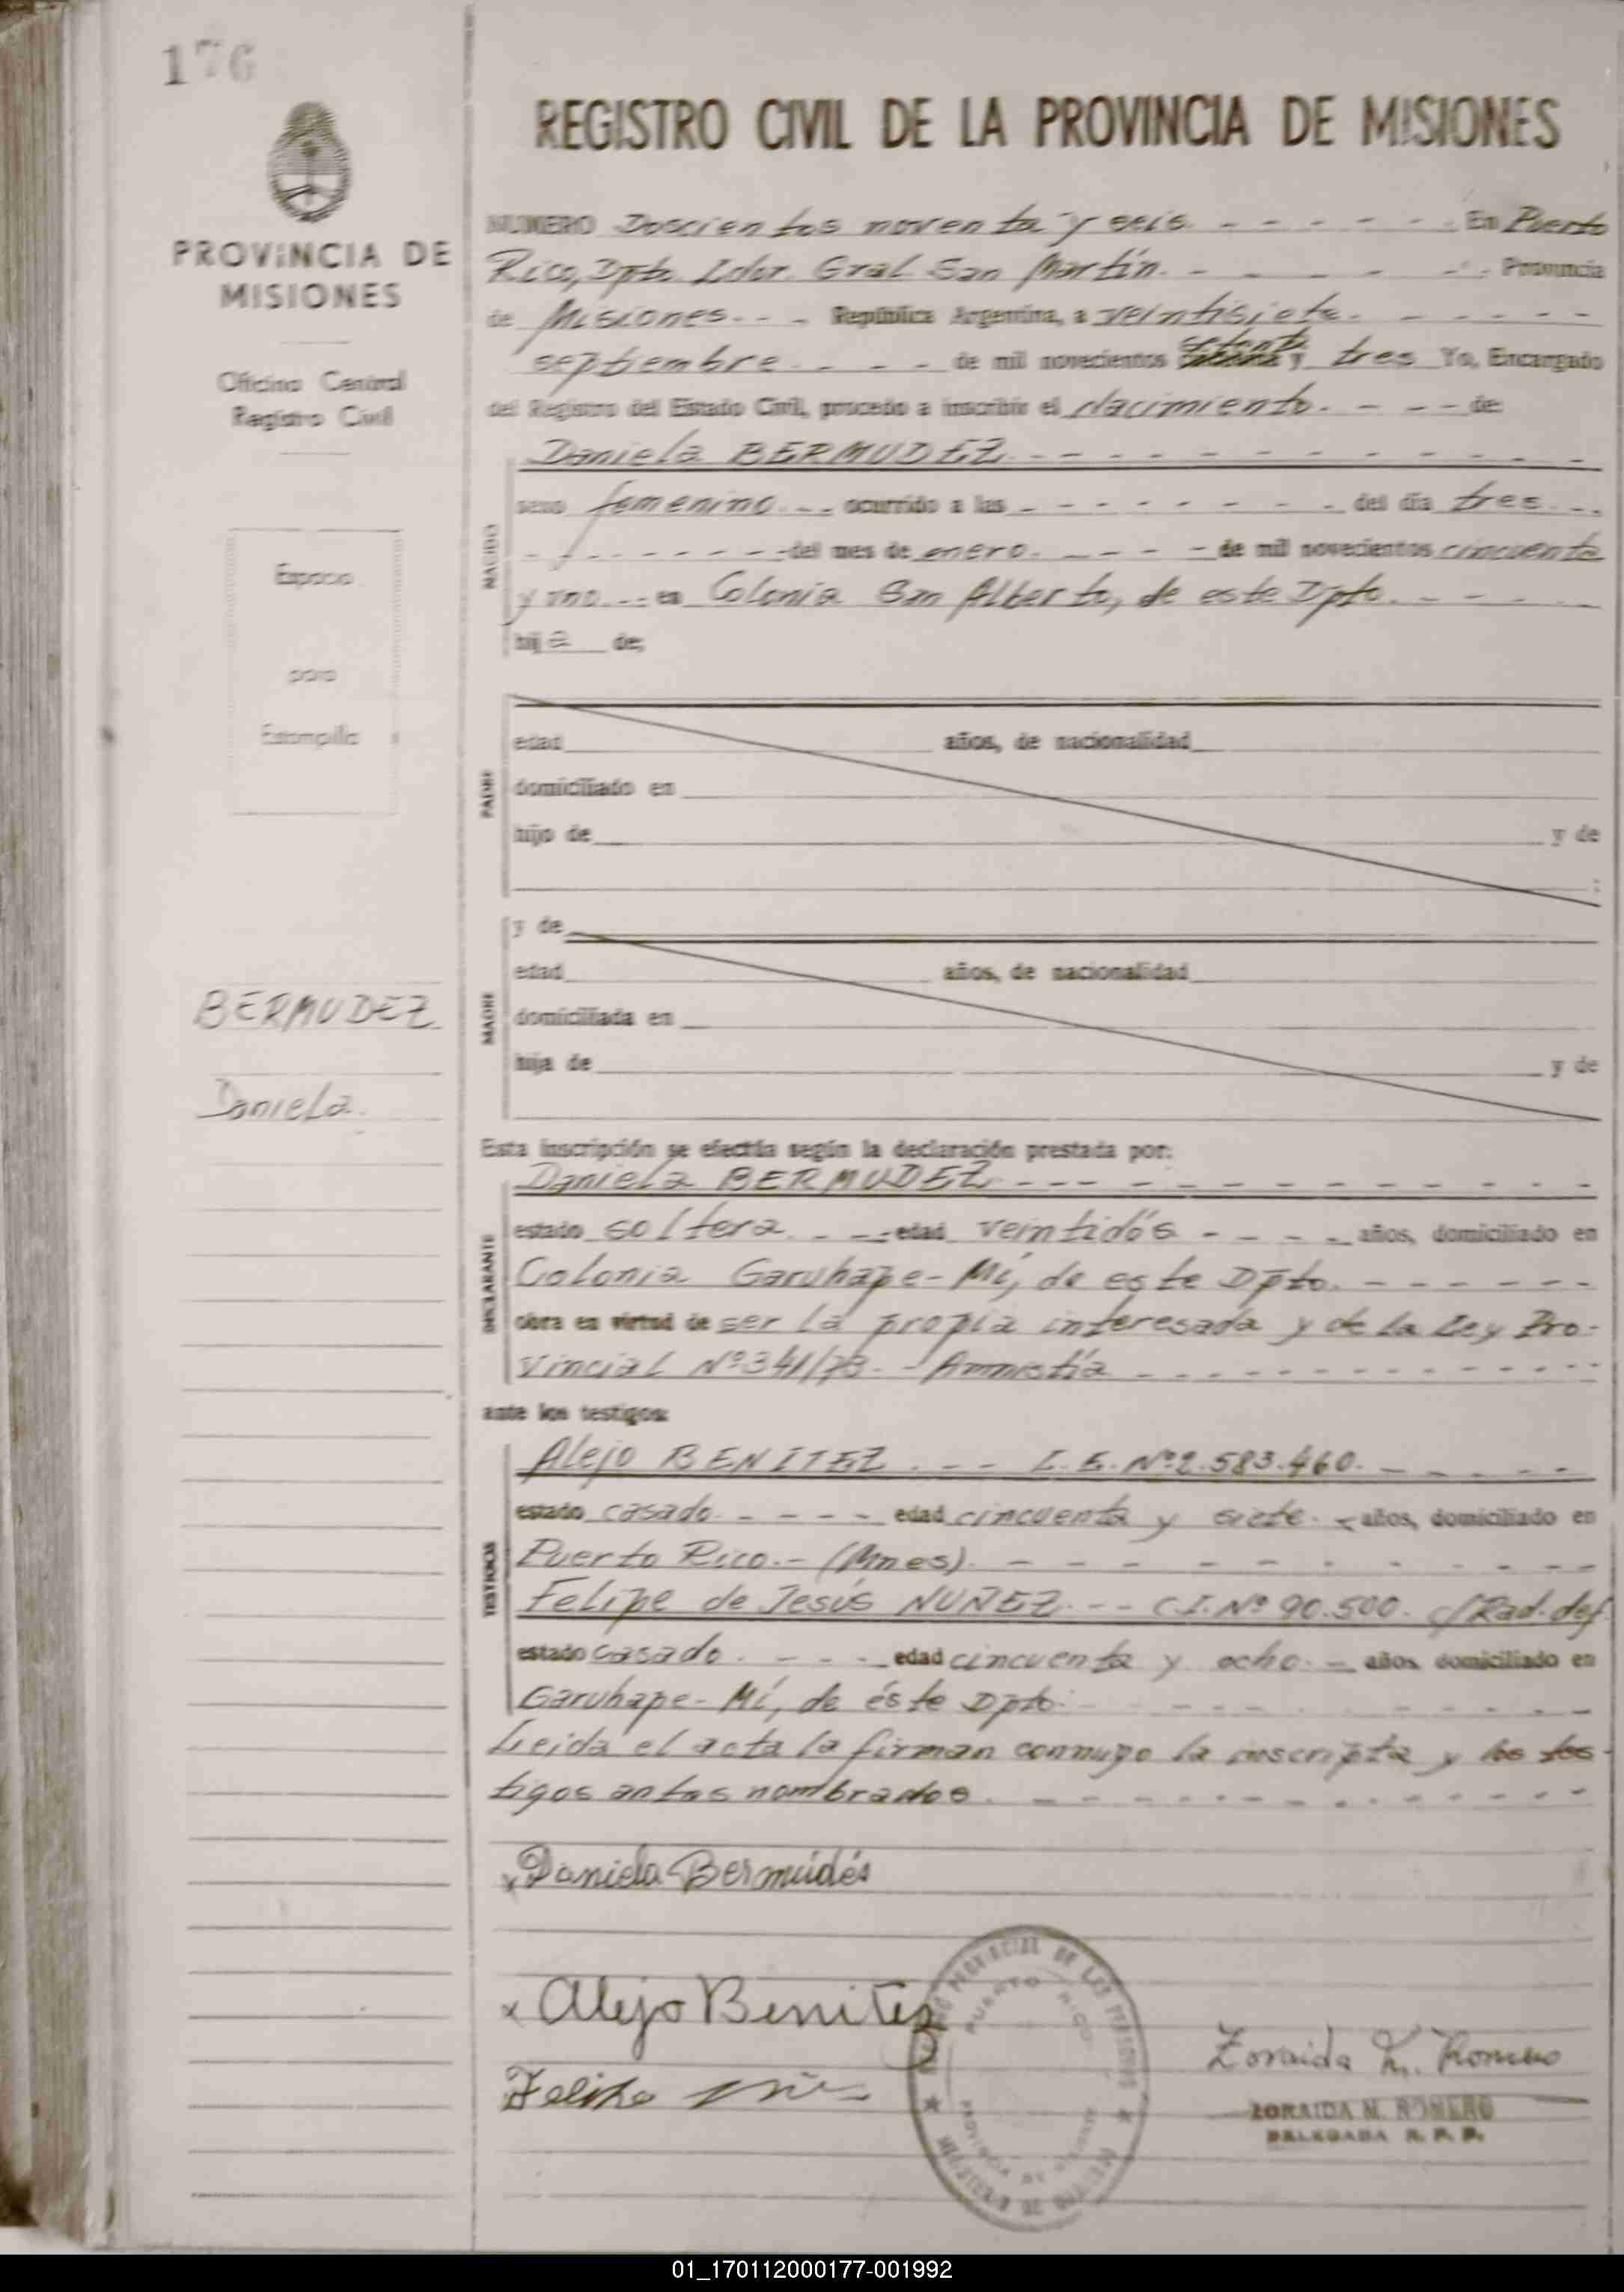 176
PROVINCIA DE
MISIONES
Oficina Central
Registro Civil
Espacio
para
Estampilla
BERMUDEZ
Daniela.
REGISTRO CIVIL DE LA PROVINCIA DE MISIONES
NUMERO Doscientos noventa y seis - - - - - - En Puerto
Rico, Dpto. Ldor. Gral San Martín. - - - - - Provincia
de Misiones. - - - República Argentina, a veintisiete. - - - - -
septiembre. - - - - de mil novecientos setenta y tres Yo, Encargado
del Registro del Estado Civil, procedo a inscribir el Nacimiento. - - - de:
Daniela BERMUDEZ. - - - - - - - - - - -
NACIDO
sexo femenino. - - ocurrido a las - - - - - - - - del día tres. - -
- - - - - - - - del mes de enero. - - - - de mil novecientos cincuenta
y uno. - - en Colonia San Alberto, de este Dpto. - - - -
hija de;
PADRE
edad años, de nacionalidad
domiciliado en
hijo de y de
;
MADRE
y de
edad años, de nacionalidad
domiciliada en
hija de y de
Esta inscripción se efectúa según la declaración prestada por:
Daniela BERMUDEZ. - - - - - - - - - - -
DECLARANTE
estado soltera. - - - edad veintidós - - - - años, domiciliado en
Colonia Garuhape-Mí, de este Dpto. - - - - - -
obra en virtud de ser la propia interesada y de la Ley Pro-
vincial Nº 341/73. - Amnistía - - - - - - - - - -
ante los testigos:
TESTIGOS
Alejo BENITEZ. - - - L.E. Nº 2.583.460. - - - - -
estado casado. - - - - edad cincuenta y siete. - años, domiciliado en
Puerto Rico. - (Mnes). - - - - - - - - -
Felipe de Jesús NUÑEZ. - - - C.I. Nº 90.500. c/Rad. def.
estado casado. - - - - edad cincuenta y ocho. - años domiciliado en
Garuhape-Mí, de éste Dpto. - - - - - - - -
Leida el acta la firman conmigo la inscripta y los tes-
tigos antes nombrados. - - - - - - - - - - -
x Daniela Bermúdés
x Alejo Benites
Felipe
Zoraida M. Romero
ZORAIDA M. ROMERO
DELEGADA R. P. P.
REGISTRO PROVINCIAL DE LAS PERSONAS
PUERTO RICO
PROVINCIA DE MISIONES
01_170112000177-001992